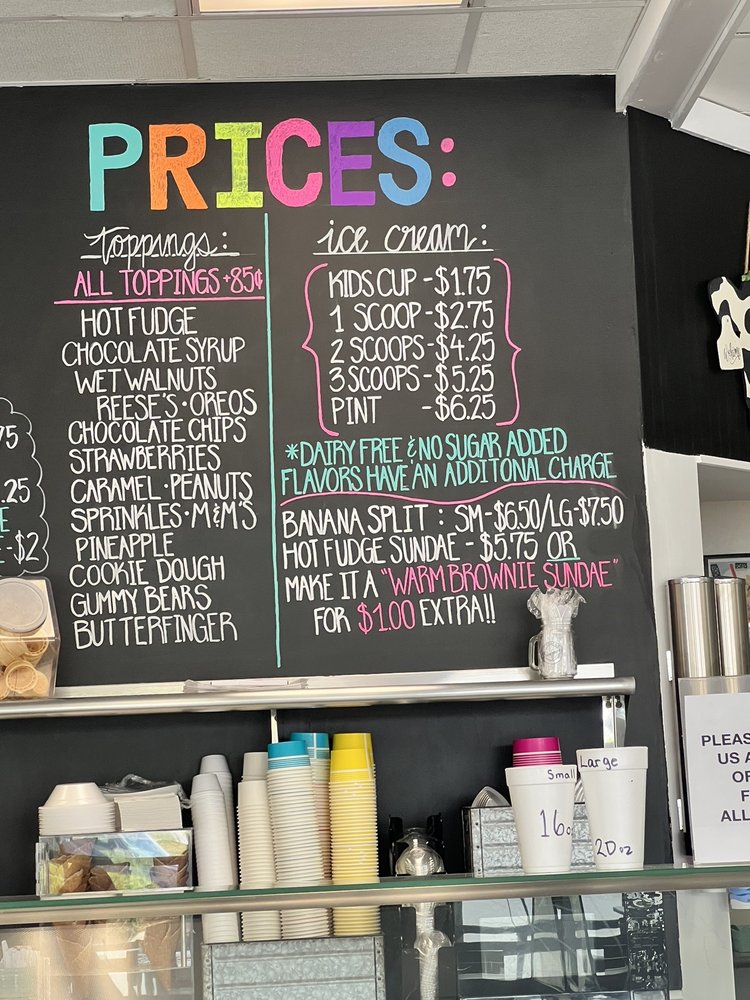 PRICES:
toppings:
ALL TOPPINGS +85¢
HOT FUDGE
CHOCOLATE SYRUP
WET WALNUTS
REESE'S · OREOS
CHOCOLATE CHIPS
STRAWBERRIES
CARAMEL · PEANUTS
SPRINKLES · M&M'S
PINEAPPLE
COOKIE DOUGH
GUMMY BEARS
BUTTERFINGER
ice cream:
KIDS CUP - $1.75
1 SCOOP - $2.75
2 SCOOPS - $4.25
3 SCOOPS - $5.25
PINT - $6.25
*DAIRY FREE & NO SUGAR ADDED
FLAVORS HAVE AN ADDITONAL CHARGE
BANANA SPLIT : SM - $6.50 / LG - $7.50
HOT FUDGE SUNDAE - $5.75 OR
MAKE IT A "WARM BROWNIE SUNDAE"
FOR $1.00 EXTRA!!
75
.25
- $2
Small
16oz
Large
20 oz
PLEAS
US A
ALL